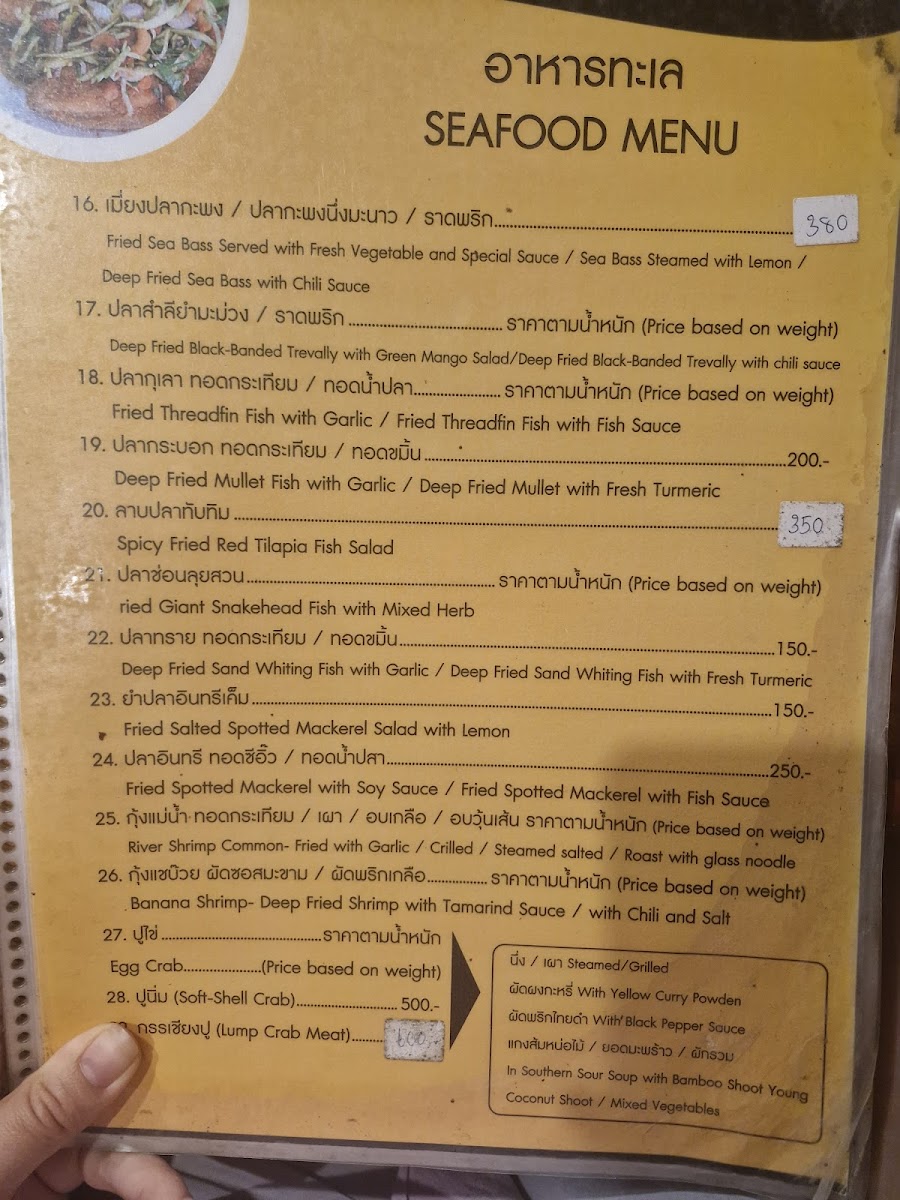 อาหารทะเล
SEAFOOD MENU
16. เมี่ยงปลากะพง / ปลากะพงนึ่งมะนาว / ราดพริก.......... 380
Fried Sea Bass Served with Fresh Vegetable and Special Sauce / Sea Bass Steamed with Lemon /
Deep Fried Sea Bass with Chili Sauce
17. ปลาสำลียำมะม่วง / ราดพริก .......... ราคาตามน้ำหนัก (Price based on weight)
Deep Fried Black-Banded Trevally with Green Mango Salad/Deep Fried Black-Banded Trevally with chili sauce
18. ปลากุเลา ทอดกระเทียม / ทอดน้ำปลา.......... ราคาตามน้ำหนัก (Price based on weight)
Fried Threadfin Fish with Garlic / Fried Threadfin Fish with Fish Sauce
19. ปลากระบอก ทอดกระเทียม / ทอดขมิ้น..........200.-
Deep Fried Mullet Fish with Garlic / Deep Fried Mullet with Fresh Turmeric
20. ลาบปลาทับทิม.......... 350
Spicy Fried Red Tilapia Fish Salad
21. ปลาช่อนลุยสวน.......... ราคาตามน้ำหนัก (Price based on weight)
ried Giant Snakehead Fish with Mixed Herb
22. ปลาทราย ทอดกระเทียม / ทอดขมิ้น..........150.-
Deep Fried Sand Whiting Fish with Garlic / Deep Fried Sand Whiting Fish with Fresh Turmeric
23. ยำปลาอินทรีเค็ม..........150.-
Fried Salted Spotted Mackerel Salad with Lemon
24. ปลาอินทรี ทอดซีอิ๊ว / ทอดน้ำปลา..........250.-
Fried Spotted Mackerel with Soy Sauce / Fried Spotted Mackerel with Fish Sauce
25. กุ้งแม่น้ำ ทอดกระเทียม / เผา / อบเกลือ / อบวุ้นเส้น ราคาตามน้ำหนัก (Price based on weight)
River Shrimp Common- Fried with Garlic / Crilled / Steamed salted / Roast with glass noodle
26. กุ้งแชบ๊วย ผัดซอสมะขาม / ผัดพริกเกลือ.......... ราคาตามน้ำหนัก (Price based on weight)
Banana Shrimp- Deep Fried Shrimp with Tamarind Sauce / with Chili and Salt
27. ปูไข่ ..........ราคาตามน้ำหนัก
Egg Crab..........(Price based on weight)
28. ปูนิ่ม (Soft-Shell Crab)..........500.-
กรรเชียงปู (Lump Crab Meat).......... 600.-
นึ่ง / เผา Steamed/Grilled
ผัดผงกะหรี่ With Yellow Curry Powden
ผัดพริกไทยดำ With Black Pepper Sauce
แกงส้มหน่อไม้ / ยอดมะพร้าว / ผักรวม
In Southern Sour Soup with Bamboo Shoot Young
Coconut Shoot / Mixed Vegetables